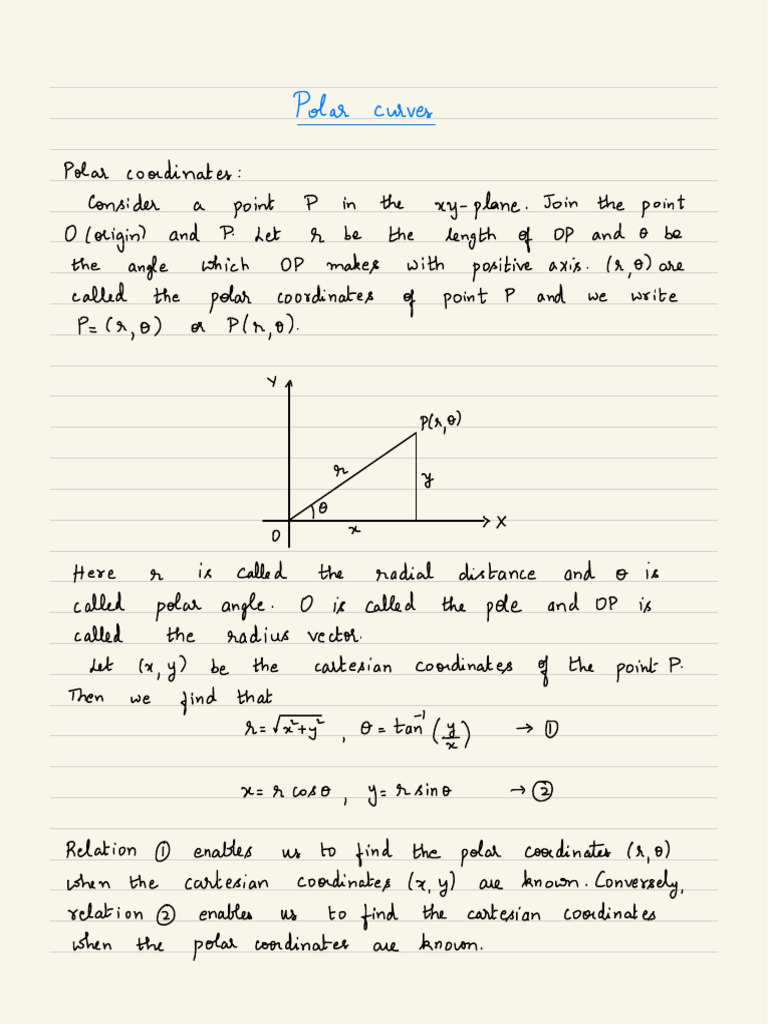 Polar curves
Polar coordinates:
Consider a point P in the xy-plane. Join the point
O (origin) and P. Let r be the length of OP and θ be
the angle which OP makes with positive axis. (r,θ) are
called the polar coordinates of point P and we write
P=(r,θ) or P(r,θ).
Y
P(r,θ)
r
y
θ
O
x
X
Here r is called the radial distance and θ is
called polar angle. O is called the pole and OP is
called the radius vector.
Let (x,y) be the cartesian coordinates of the point P.
Then we find that
r=√x²+y² , θ = tan⁻¹(y/x) → ①
x= r cosθ , y= r sinθ → ②
Relation ① enables us to find the polar coordinates (r,θ)
when the cartesian coordinates (x,y) are known. Conversely,
relation ② enables us to find the cartesian coordinates
when the polar coordinates are known.